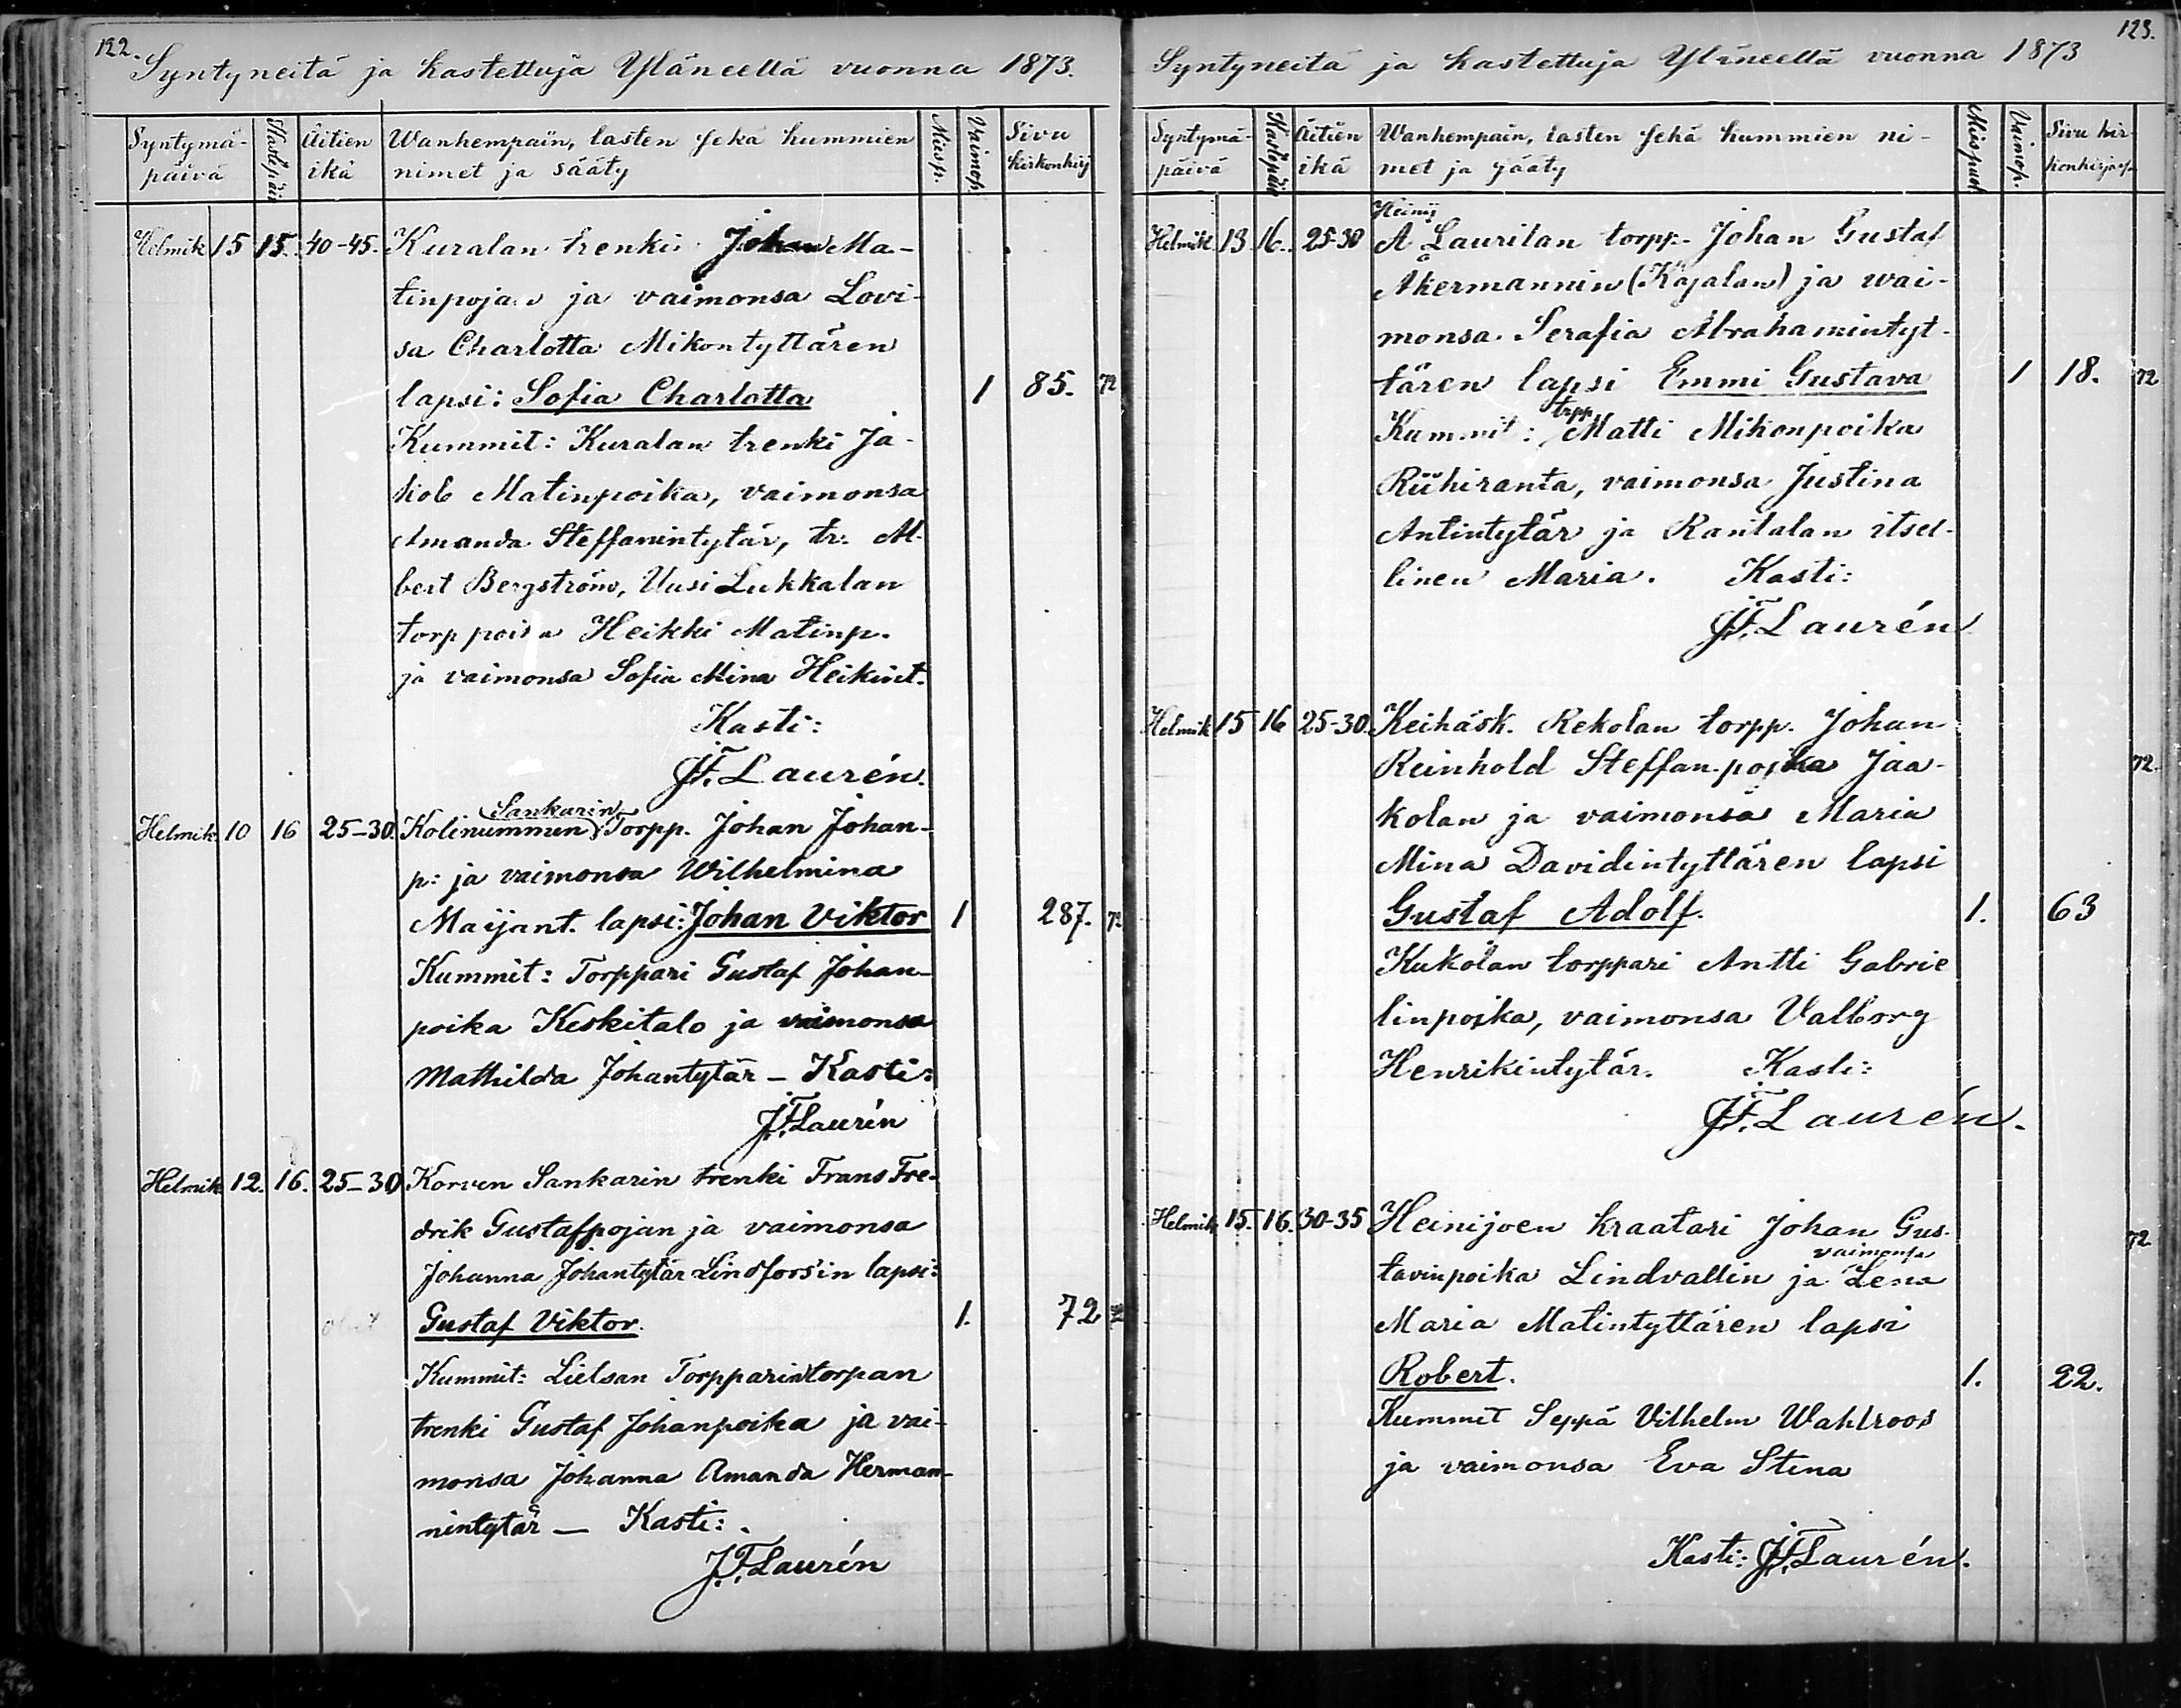 122.
Syntyneitä ja kastettuja Yläneellä vuonna 1873.
Syntymä-päivä Kastepäiv Äitien ikä Wanhempain, lasten sekä kummien nimet ja sääty Miesp. Vaimop. Sivu kirkonkirj
Helmik 15 15. 40-45. Kuralan trenki Johan Ma-
tinpojan ja vaimonsa Lovi-
sa Charlotta Mikontyttären
lapsi: Sofia Charlotta 1 85. 72
Kummit: Kuralan trenki Ja-
kob Matinpoika, vaimonsa
Amanda Steffanintytär, tr. Al-
bert Bergström, Uusi Lukkalan
torp poika Heikki Matinp.
ja vaimonsa Sofia Mina Heikint.
Kasti:
J.F. Laurén.
Sankarin
Helmik. 10 16 25-30. Kolinummen Torpp. Johan Johan-
p: ja vaimonsa Wilhelmina
Maijant. lapsi: Johan Viktor 1 287. 72
Kummit: Torppari Gustaf Johan-
poika Keskitalo ja vaimonsa
Mathilda Johantytär - Kasti:
J.F. Laurén
Helmik 12. 16. 25-30 Korven Sankarin trenki Frans Fre-
drik Gustafpojan ja vaimonsa
Johanna Johantytär Lindfors'in lapsi:
Gustaf Viktor. 1. 72
Kummit: Lielsan Torpparintorpan
trenki Gustaf Johanpoika ja vai-
monsa Johanna Amanda Herman-
nintytär - Kasti:
J.F. Laurén
123.
Syntyneitä ja kastettuja Yläneellä vuonna 1873
Syntymä-päivä Kastepäiv Äitien ikä Wanhempain, lasten sekä kummien ni-met ja sääty Miespuol Vaimop. Sivu kir-konkirjasa
Heinij
Helmik. 13 16. 25-30 A Laurilan torpp. Johan Gustaf
Åkermannin (Kajalan) ja wai-
monsa Serafia Abrahamintyt-
tären lapsi Emmi Gustava 1 18. 72
trpp
Kummit: Matti Mikonpoika
Riihiranta, vaimonsa Justina
Antintytär ja Rantalan itsel-
linen Maria. Kasti:
J.F. Laurén
Helmik 15 16 25-30. Keihäsk. Rekolan torpp. Johan
Reinhold Steffan.poika Jaa- 72.
kolan ja vaimonsa Maria
Mina Davidintyttären lapsi
Gustaf Adolf. 1. 63
Kukolan torppari Antti Gabrie
linpoika, vaimonsa Valborg
Henrikintytär. Kasti:
J.F. Laurén.
Helmik 15. 16. 30-35 Heinijoen kraatari Johan Gus- 72
vaimonsa
tavinpoika Lindvallin ja Lena
Maria Matintyttären lapsi
Robert. 1. 22.
Kummit Seppä Vilhelm Wahlroos
ja vaimonsa Eva Stina
Kasti: J.F. Laurén.